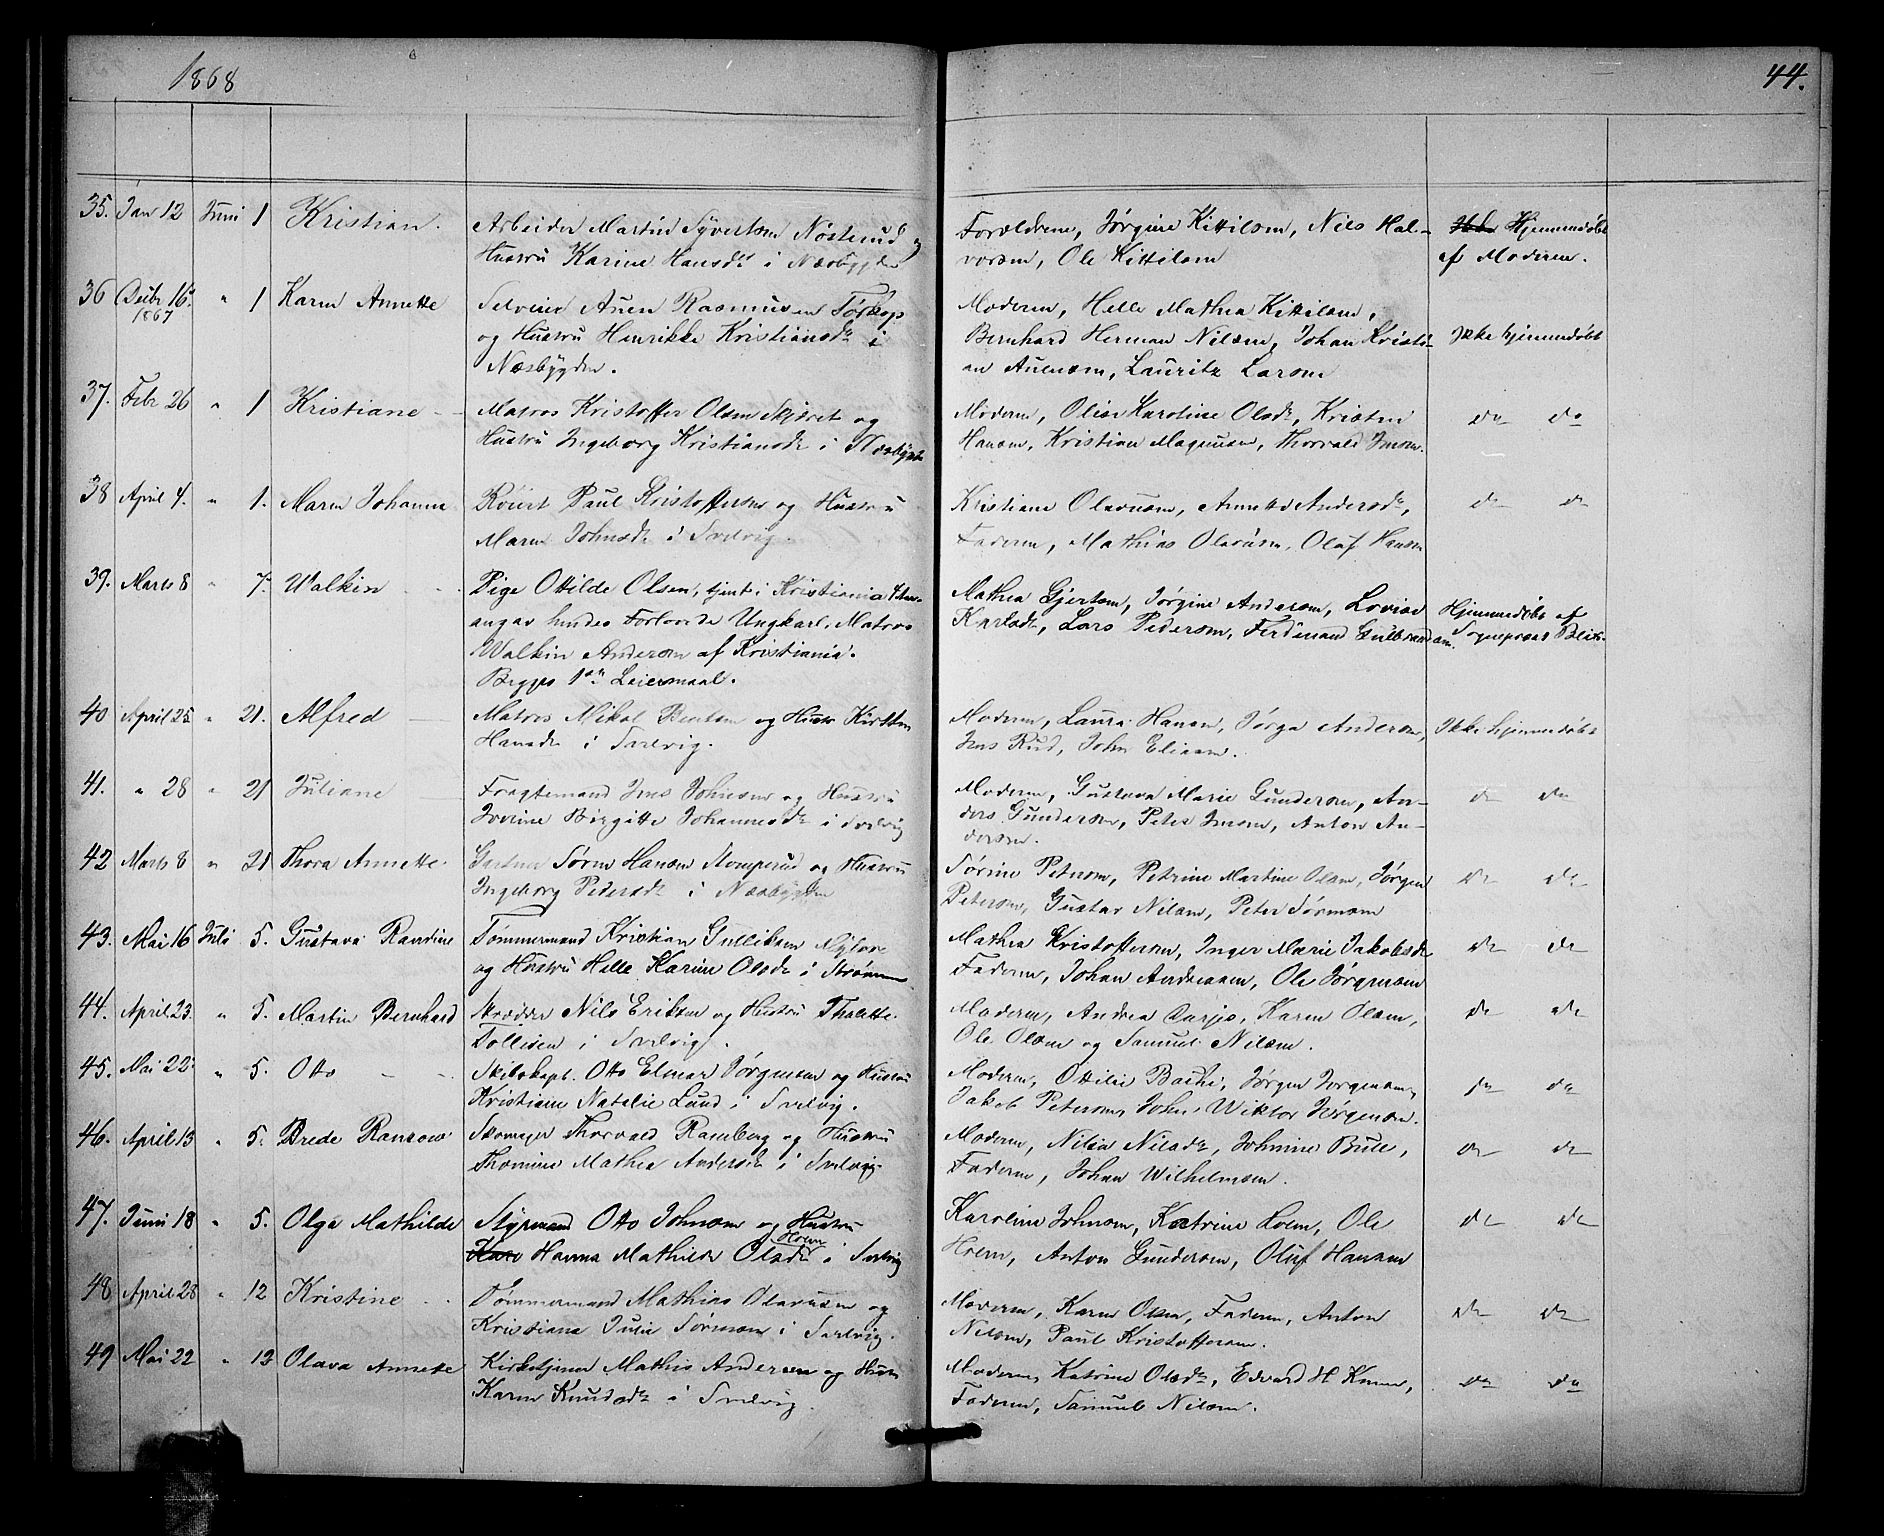 1868
44.
35. Jan 12 Juni 1 Kristian. Arbeider Martin Syvertsen Nøsterud og
Hustru Karine Hansdr i Næsbygden
Forældrene, Jørgine Kittilsen, Nils Hal-
vorsen, Ole Kittilsen
Hjemmedøbt
af Moderen.
36 Decbr 16. " 1 Karen Annette Selveier Auen Rasmusen Torkop
1867
og Hustru Henrikke Kristiansdr i
Næsbygden.
Moderen, Helle Mathea Kittilsen,
Bernhard Herman Nilsen, Johan Kristi-
an Auensen, Lauritz Larsen
Ikke hjemmedøbt
37. Febr 26 " 1 Kristiane Matros Kristoffer Olsen Skjæret og
Hustru Ingeborg Kristiansdr i Næsbygden
Moderen, Olise Karoline Olsdr, Kristen
Hansen, Kristian Magnusen, Thorvald Jensen.
do do
38 April 4. " 1. Maren Johanne Paul Kristoffersen og Hustru
Maren Johnsdr i Svelvig.
Kristiane Olavusen, Annette Andersdr,
Faderen, Mathias Olavusen, Oluf Hansen
do do
39. Marts 8 " 7. Walkin Pige Otilde Olsen, tjent i Kristiania
angav hendes Forlovede Ungkarl, Matros
Walkin Andersen af Kristiania.
Begges 1ste Leiermaal.
Mathea Gjertsen, Jørgine Andersen, Lovise
Karlsdr, Lars Pedersen, Ferdinand Gulbrandsen.
Hjemmedøbt af
Sognepræst Blix
40 April 25 " 21. Alfred Matros Mikal Bentsen og Hustr Kirsten
Hansdr i Svelvig.
Moderen, Laura Hansen, Jørga Andersen,
Jens Rud, John Eliasen.
Ikke hjemmedøbt
41. " 28 " 21 Juliane Fragtemand Jens Johnsen og Hustru
Iverine Birgitte Johannesdr i Svelvig
Moderen, Gustava Marie Gundersen, An-
ders Gundersen, Peter Jensen, Anton An-
dersen.
do do
42 Marts 8 " 21 Thora Annette Gartner Søren Hansen Stomperud og Hustru
Ingeborg Pedersdr i Næsbygden
Sørine Petersen, Petrine Martine Olsen, Jørgen
Petersen, Gustav Nilsen, Peter Sørensen
do do
43. Mai 16 Juli 5. Gustava Randine Tømmermand Kristian Gulliksen
og Hustru Helle Karine Olsdr i Strømm
Mathea Kristoffersen, Inger Marie Jakobsdr
Faderen, Johan Andreasen, Ole Jørgensen
do do
44. April 23. " 5. Martin Bernhard Skrædder Nils Eriksen og Hustru Thalette
Tollisen i Svelvig.
Moderen, Andrea Carjo, Karen Olsen,
Ole Olsen og Samuel Nilsen.
do do
45. Mai 22 " 5. Otto Skibskapt. Otto Elmar Jørgensen og Hustru
Kristiane Natalie Lund i Svelvig.
Moderen, Ottilie Bache, Jørgen Jørgensen,
Jakob Petersen, John Wiktor Jørgensen.
do do
46. April 13 " 5. Brede Ranzow Skomager Thorvald Ramberg og Hustru
Thomine Mathea Andersdr i Svelvig.
Moderen, Nilia Nilsdr, Johnine Bule,
Faderen, Johan Wilhelmsen.
do do
47. Juni 18 " 5. Olga Mathilde Styrmand Otto Johnsen og Hustru
Hanna Mathilde Olsdr Hoem i Svelvig
Karoline Johnsen, Katrine Hoem, Ole
Hoem, Anton Gundersen, Oluf Hansen
do do
48 April 28 " 12 Kristine Tømmermand Mathias Olavusen og
Kristiane Julie Sørensen i Svelvig.
Moderen, Karen Olsen, Faderen, Anton
Nilsen, Paul Kristoffersen.
do do
49 Mai 22 " 12 Olava Annette Kirketjener Mathis Andersen og Hustru
Karen Knudsdr i Svelvig.
Moderen, Katrine Olsdr, Edvard H
Faderen, Samuel Nilsen.
do do